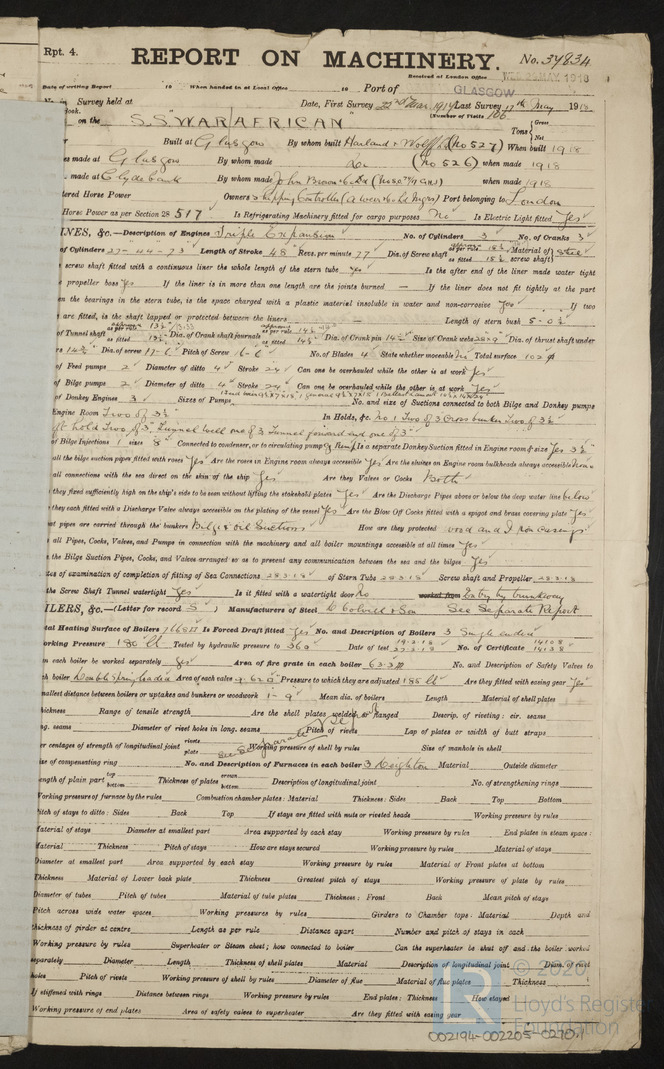 Rpt. 4.
REPORT ON MACHINERY.
No. 34834
Received at London Office WED. MAY. 1918
Date of writing Report 19 When handed in at Local Office 19 Port of GLASGOW
No. in Survey held at Date, First Survey 22nd Mar. 1917 Last Survey 17th May 1918
Book. (Number of Visits 106
on the S.S. "WAR AFRICAN" Tons Gross Net
Built at Glasgow By whom built Harland & Wolff Ld (No 527) When built 1918
made at Glasgow By whom made Do (No 526) when made 1918
made at Clydebank By whom made John Brown & Co Ld when made 1918
Horse Power Owners Shipping Controller Port belonging to London
Horse Power as per Section 28 517 Is Refrigerating Machinery fitted for cargo purposes No Is Electric Light fitted Yes
INES, &c.—Description of Engines Triple Expansion No. of Cylinders 3 No. of Cranks 3
of Cylinders 27"-44"-73" Length of Stroke 48 Revs. per minute 77 Dia. of Screw shaft as per rule as fitted Material of screw shaft Steel
screw shaft fitted with a continuous liner the whole length of the stern tube Yes Is the after end of the liner made water tight
propeller boss Yes If the liner is in more than one length are the joints burned — If the liner does not fit tightly at the part
the bearings in the stern tube, is the space charged with a plastic material insoluble in water and non-corrosive Yes If two
are fitted, is the shaft lapped or protected between the liners — Length of stern bush 5-0½
of Tunnel shaft as per rule as fitted Dia. of Crank shaft journals as per rule as fitted Dia. of Crank pin Size of Crank webs Dia. of thrust shaft under
Dia. of screw 17-6 Pitch of Screw 16-6 No. of Blades 4 State whether moveable Total surface 102
of Feed pumps 2 Diameter of ditto 4 Stroke 24 Can one be overhauled while the other is at work Yes
of Bilge pumps 2 Diameter of ditto 4 Stroke 24 Can one be overhauled while the other is at work Yes
of Donkey Engines 3 Sizes of Pumps No. and size of Suctions connected to both Bilge and Donkey pumps
Engine Room Two of 3½ In Holds, &c. No 1 Two of 3 Cross bunker Two of 3½
aft hold Two of 3", Tunnel well one of 3 Tunnel forward and one of 3"
of Bilge Injections 1 sizes 8" Connected to condenser, or to circulating pump Is a separate Donkey Suction fitted in Engine room & size Yes 3½"
all the bilge suction pipes fitted with roses Yes Are the roses in Engine room always accessible Yes Are the sluices on Engine room bulkheads always accessible None
all connections with the sea direct on the skin of the ship Yes Are they Valves or Cocks Both
they fixed sufficiently high on the ship's side to be seen without lifting the stokehold plates Yes Are the Discharge Pipes above or below the deep water line below
they each fitted with a Discharge Valve always accessible on the plating of the vessel Yes Are the Blow Off Cocks fitted with a spigot and brass covering plate Yes
pipes are carried through the bunkers Bilge & oil Suctions How are they protected wood and Iron casings
all Pipes, Cocks, Valves, and Pumps in connection with the machinery and all boiler mountings accessible at all times Yes
the Bilge Suction Pipes, Cocks, and Valves arranged so as to prevent any communication between the sea and the bilges Yes
of examination of completion of fitting of Sea Connections 28.3.18 of Stern Tube 28.3.18 Screw shaft and Propeller 28.3.18
the Screw Shaft Tunnel watertight Yes Is it fitted with a watertight door No worked from
ILERS, &c.—(Letter for record S) Manufacturers of Steel D Colville & Son See Separate Report
Total Heating Surface of Boilers 7668 Is Forced Draft fitted Yes No. and Description of Boilers 3 Single ended
Working Pressure 180 lb Tested by hydraulic pressure to 360 Date of test 19.2.18 No. of Certificate 14108 14138
each boiler be worked separately Yes Area of fire grate in each boiler 63.3 No. and Description of Safety Valves to
boiler Double Spring loaded Area of each valve 9.62 Pressure to which they are adjusted 185 lb Are they fitted with easing gear Yes
Smallest distance between boilers or uptakes and bunkers or woodwork 1-9" Mean dia. of boilers Length Material of shell plates
Thickness Range of tensile strength Are the shell plates welded or flanged Descrip. of riveting: cir. seams
long. seams Diameter of rivet holes in long. seams Pitch of rivets Lap of plates or width of butt straps
centages of strength of longitudinal joint rivets plate Working pressure of shell by rules Size of manhole in shell
See Separate Report
of compensating ring No. and Description of Furnaces in each boiler 3 Deighton Material Outside diameter
Length of plain part top bottom Thickness of plates crown bottom Description of longitudinal joint No. of strengthening rings
Working pressure of furnace by the rules Combustion chamber plates: Material Thickness: Sides Back Top Bottom
Pitch of stays to ditto: Sides Back Top If stays are fitted with nuts or riveted heads Working pressure by rules
Material of stays Diameter at smallest part Area supported by each stay Working pressure by rules End plates in steam space:
Material Thickness Pitch of stays How are stays secured Working pressure by rules Material of stays
Diameter at smallest part Area supported by each stay Working pressure by rules Material of Front plates at bottom
Thickness Material of Lower back plate Thickness Greatest pitch of stays Working pressure of plate by rules
Diameter of tubes Pitch of tubes Material of tube plates Thickness: Front Back Mean pitch of stays
Pitch across wide water spaces Working pressures by rules Girders to Chamber tops: Material Depth and
thickness of girder at centre Length as per rule Distance apart Number and pitch of stays in each
Working pressure by rules Superheater or Steam chest; how connected to boiler Can the superheater be shut off and the boiler worked
separately Diameter Length Thickness of shell plates Material Description of longitudinal joint Diam. of rivet
holes Pitch of rivets Working pressure of shell by rules Diameter of flue Material of flue plates Thickness
If stiffened with rings Distance between rings Working pressure by rules End plates: Thickness How stayed
Working pressure of end plates Area of safety valves to superheater Are they fitted with easing gear
© 2020
Lloyd's Register
Foundation
002194-002205-0270.1